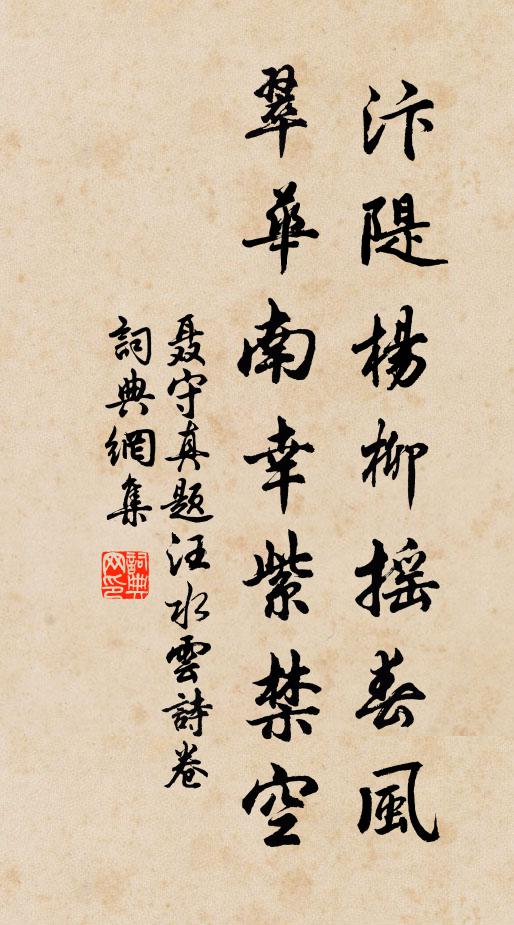 汴隄楊柳摇春風
翠華南幸紫禁空
聂守真题汪水雲詩卷
詞典網集
詞典网印